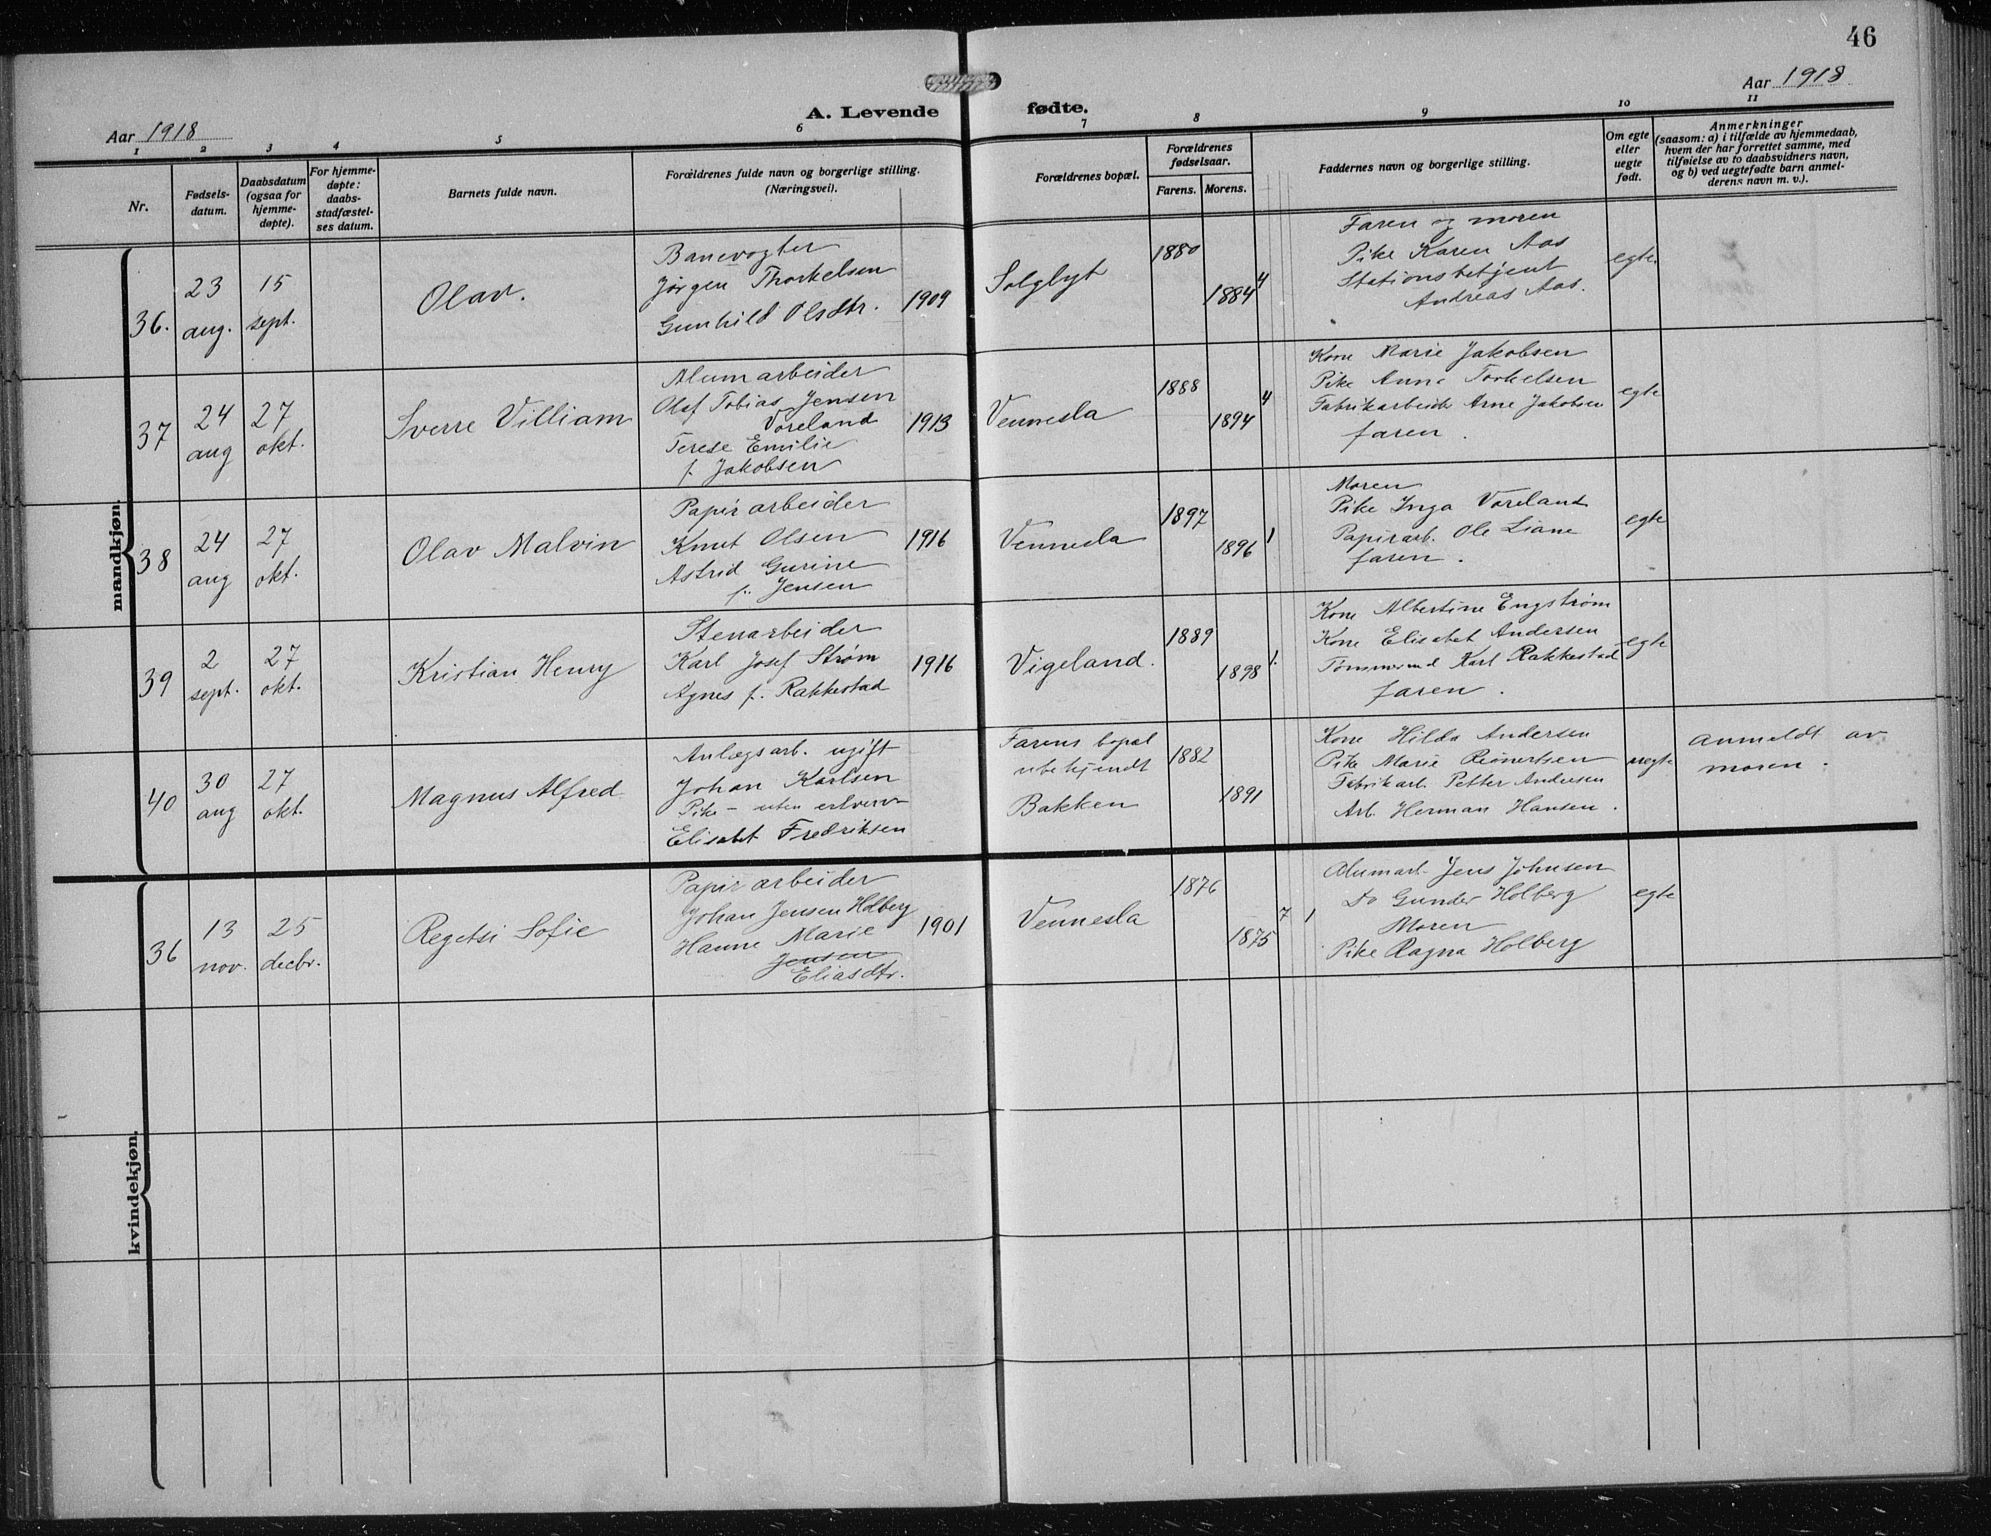 46
Aar 1918
Aar 1918
A. Levende fødte.
1 2 3 4 5 6 7 8 9 10 11
Nr.
Fødsels-
datum.
Daabsdatum
(ogsaa for
hjemme-
døpte).
For hjemme-
døpte:
daabs-
stadfæstel-
ses datum.
Barnets fulde navn.
Forældrenes fulde navn og borgerlige stilling.
(Næringsvei).
Forældrenes bopæl.
Forældrenes
fødselsaar.
Farens. Morens.
Faddernes navn og borgerlige stilling.
Om egte
eller
uegte
født.
Anmerkninger
(saasom: a) i tilfælde av hjemmedaab,
hvem der har forrettet samme, med
tilføielse av to daabsvidners navn,
og b) ved uegtefødte barn anmel-
derens navn m. v.).
mandkjøn.
36.
23
aug.
15
sept.
Olav.
Banevogter
Jørgen Thorkelsen
Gunhild Olsdtr.
1909
Solglyt
1880
1884
4
Faren og moren
Pike Karen Aas
Stationsbetjent
Andreas Aas.
egte
37
24
aug
27
okt.
Sverre Villiam
Alumarbeider
Olaf Tobias Jensen
Voreland
Terese Emilie
f. Jakobsen
1913
Vennesla
1888
1894
4
Kone Marie Jakobsen
Pike Anna Torkelsen
Fabrikarbeider Arne Jakobsen
faren.
egte
38
24
aug
27
okt.
Olav Malvin
Papirarbeider
Knut Olsen
Astrid Gurine
f. Jensen
1916
Vennesla
1897
1896
1
Moren
Pike Inga Voreland
Papirarb. Ole Liane
faren.
egte
39
2
sept.
27
okt.
Kristian Henry
Stenarbeider
Karl Josef Strøm
Agnes f. Rakkestad
1916
Vigeland.
1889
1898
1.
Kone Albertine Engstrøm
Kone Elisabet Andersen
Tømmermd Karl Rakkestad
faren.
egte
40
30
aug
27
okt.
Magnus Alfred
Anlægsarb. ugift
Johan Karlsen
Pike - uten erhverv
Elisabet Fredriksen
Farens bopæl
ubekjendt
Bakken
1882
1891
Kone Hilda Andersen
Pike Marie Reinertsen
Fabrikarb. Petter Andersen
Arb. Herman Hansen.
uegte
anmeldt av
moren.
kvindekjøn.
36
13
nov.
25
decbr.
Regetsi Sofie
Papirarbeider
Johan Jensen Holberg
Hanne Marie
Jensen
Eliasdtr.
1901
Vennesla
1876
1875
7 1
Alumarb. Jens Johnsen
Do Gunder Holberg
Moren
Pike Ragna Holberg
egte